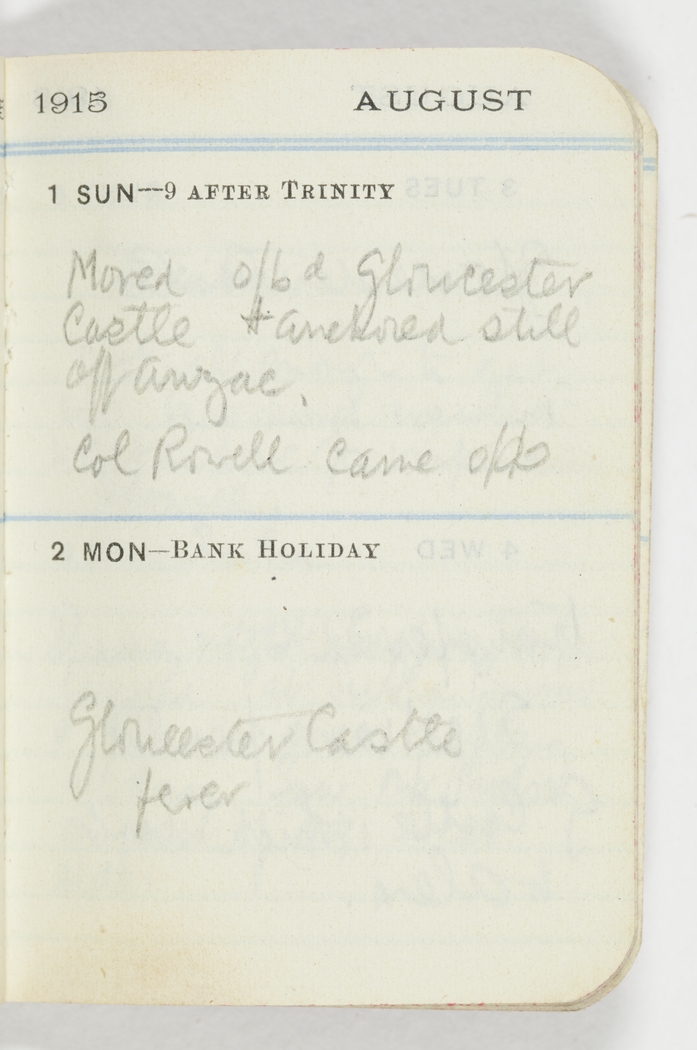 1915 AUGUST
1 SUN—9 AFTER TRINITY
Moved o/bd Gloucester
Castle & anchored still
off Anzac.
Col Rowell came o/b
2 MON—BANK HOLIDAY
Gloucester Castle
fever